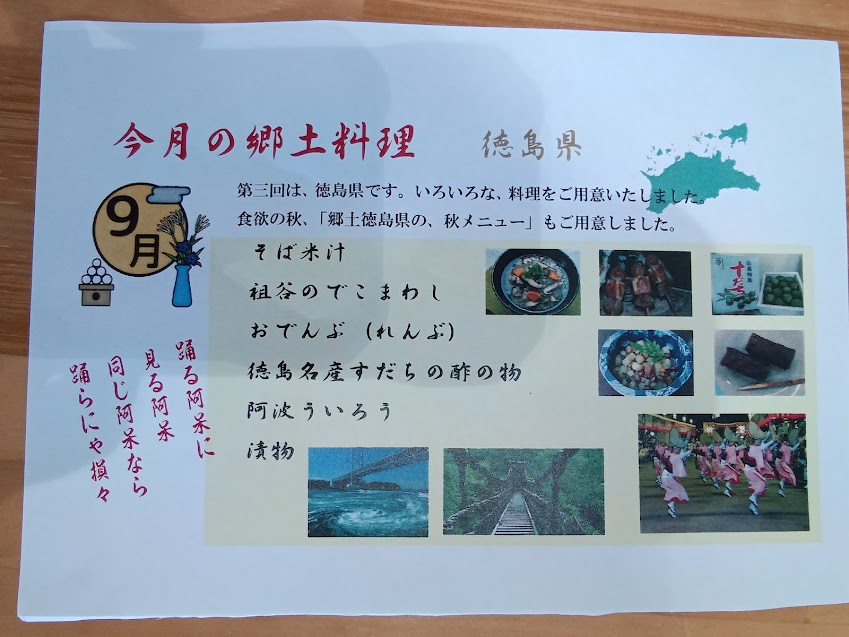 今月の郷土料理 徳島県
9月
第三回は、徳島県です。いろいろな、料理をご用意いたしました。
食欲の秋、「郷土徳島県の、秋メニュー」もご用意しました。
そば米汁
祖谷のでこまわし
おでんぶ（れんぶ）
徳島名産すだちの酢の物
阿波ういろう
漬物
踊る阿呆に
見る阿呆
同じ阿呆なら
踊らにゃ損々
すだち